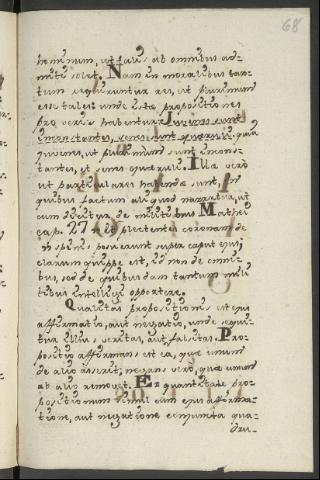 68
hominum, ut falsus ab omnibus ad-
mitti solet. Nam in moralibus tan-
tum requiruntur res, ut plurimum
esse tales: unde istae propositiones
pro veris habentur: Juvenes sunt
inconstantes, senes sunt quaeruli: quia
juvenes, ut plurimum sunt incons-
tantes, et senes quaeruli. Illae vero
ut particulares habendae sunt, in
quibus factum aliquod narratur, ut
cum dicitur de militibus Mathei
cap. 27 et plectentes coronam de
spinis posuerunt super caput ejus
clarum quippe est, id non de omni-
bus, sed de quibusdam tantum mili-
tibus intelligi opportere.
Qualitas propositionis est ejus
affirmatio, aut negatio, unde sequi-
tur illius veritas, aut falsitas. Pro-
positio affirmans est ea, quae unum
de alio asserit; negans vero, quae unum
ab alio removet. Ex quantitate pro-
positionum simul cum ejus affirma-
tione, aut negatione conjuncta qua-